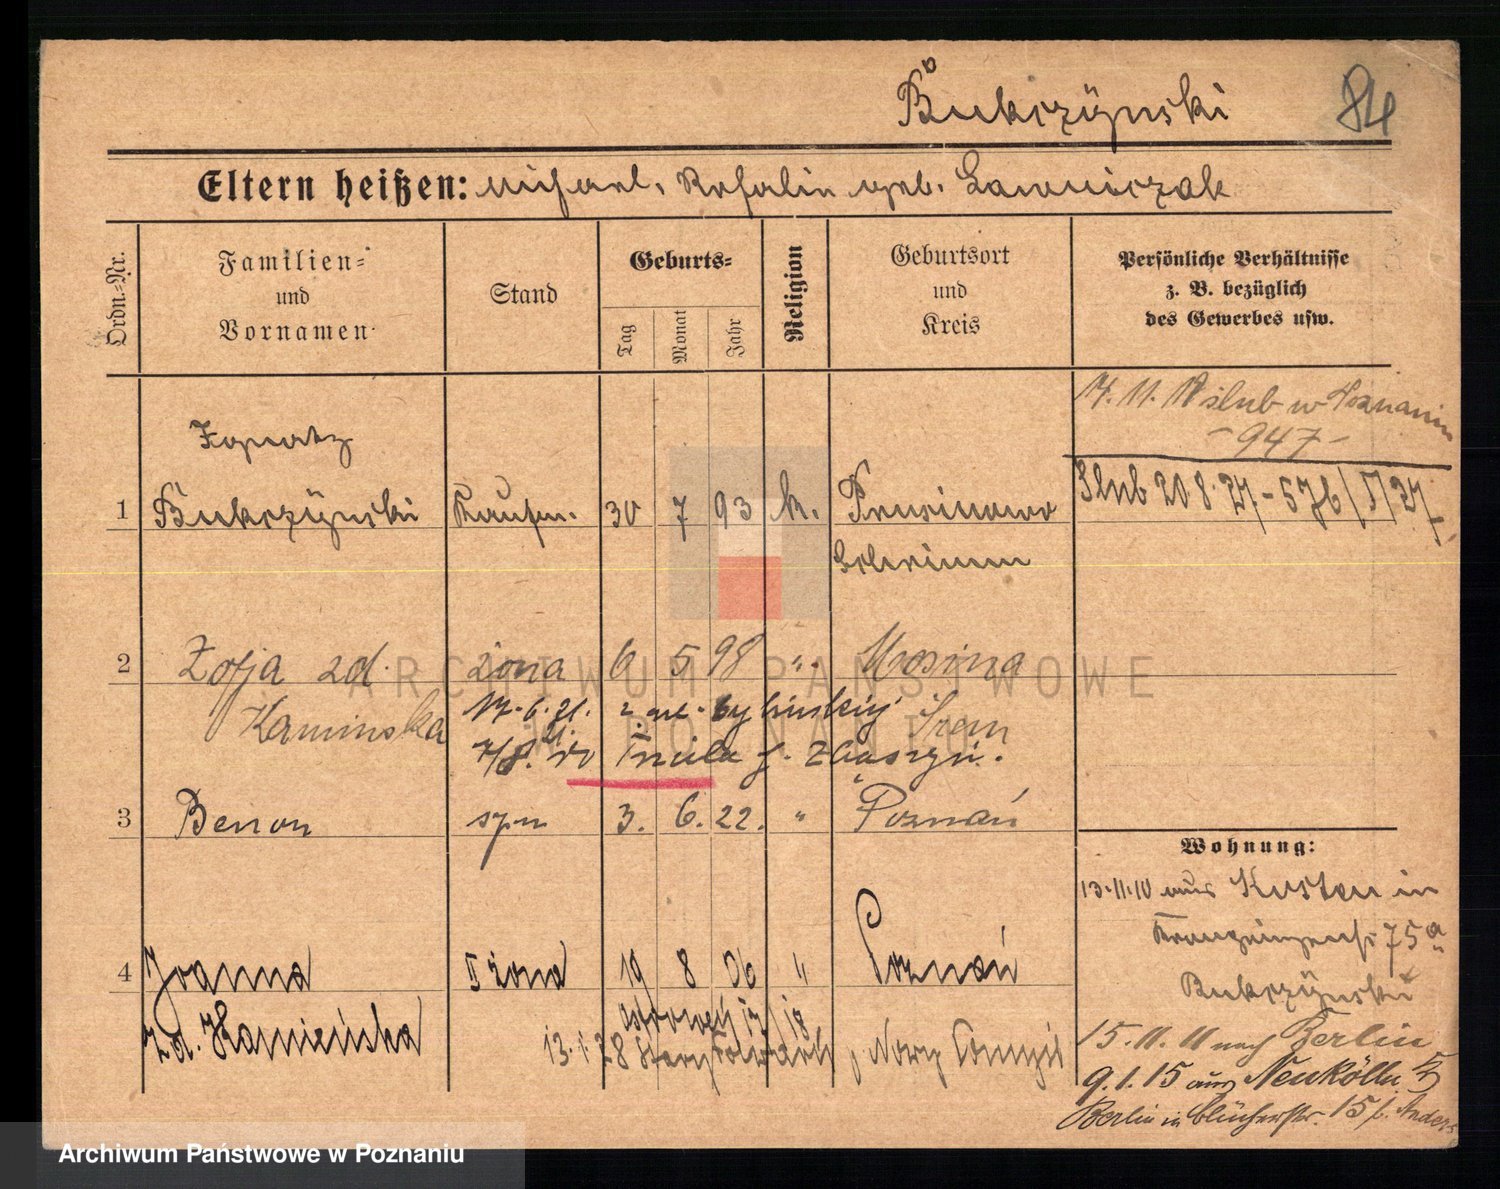 Bukczyński 84
Eltern heißen: Michael, Rosalie geb. Ławniczak
Ordn.-Nr.
Familien-
und
Vornamen
Stand
Geburts-
Tag
Monat
Jahr
Religion
Geburtsort
und
Kreis
Persönliche Verhältnisse
z. B. bezüglich
des Gewerbes usw.
ślub w Poznaniu
- 947 -
Ślub 20.8.27. - 576/V/27
Ignatz
1 Bukczyński Kaufm. 30 7 93 k. Prusinowo
Schrimm
2 Zofja zd. żona 6 5 98 " Mosina
Kamińska Śrem
17.6.21.
7/8. Zbąszyń.
3 Benon syn 3. 6. 22. " Poznań
4 Joanna II żona 19 8 06 " Poznań
zd. Kamieńska
13.1.28 Stary Folwark, Nowy Tomyśl
Wohnung:
13.11.10 aus Kosten in
75a
Bukczyński
15.11.11 nach Berlin
9.1.15 aus Neukölln
Berlin in Blücherstr. 15 b.
ARCHIWUM PAŃSTWOWE
W POZNANIU
Archiwum Państwowe w Poznaniu